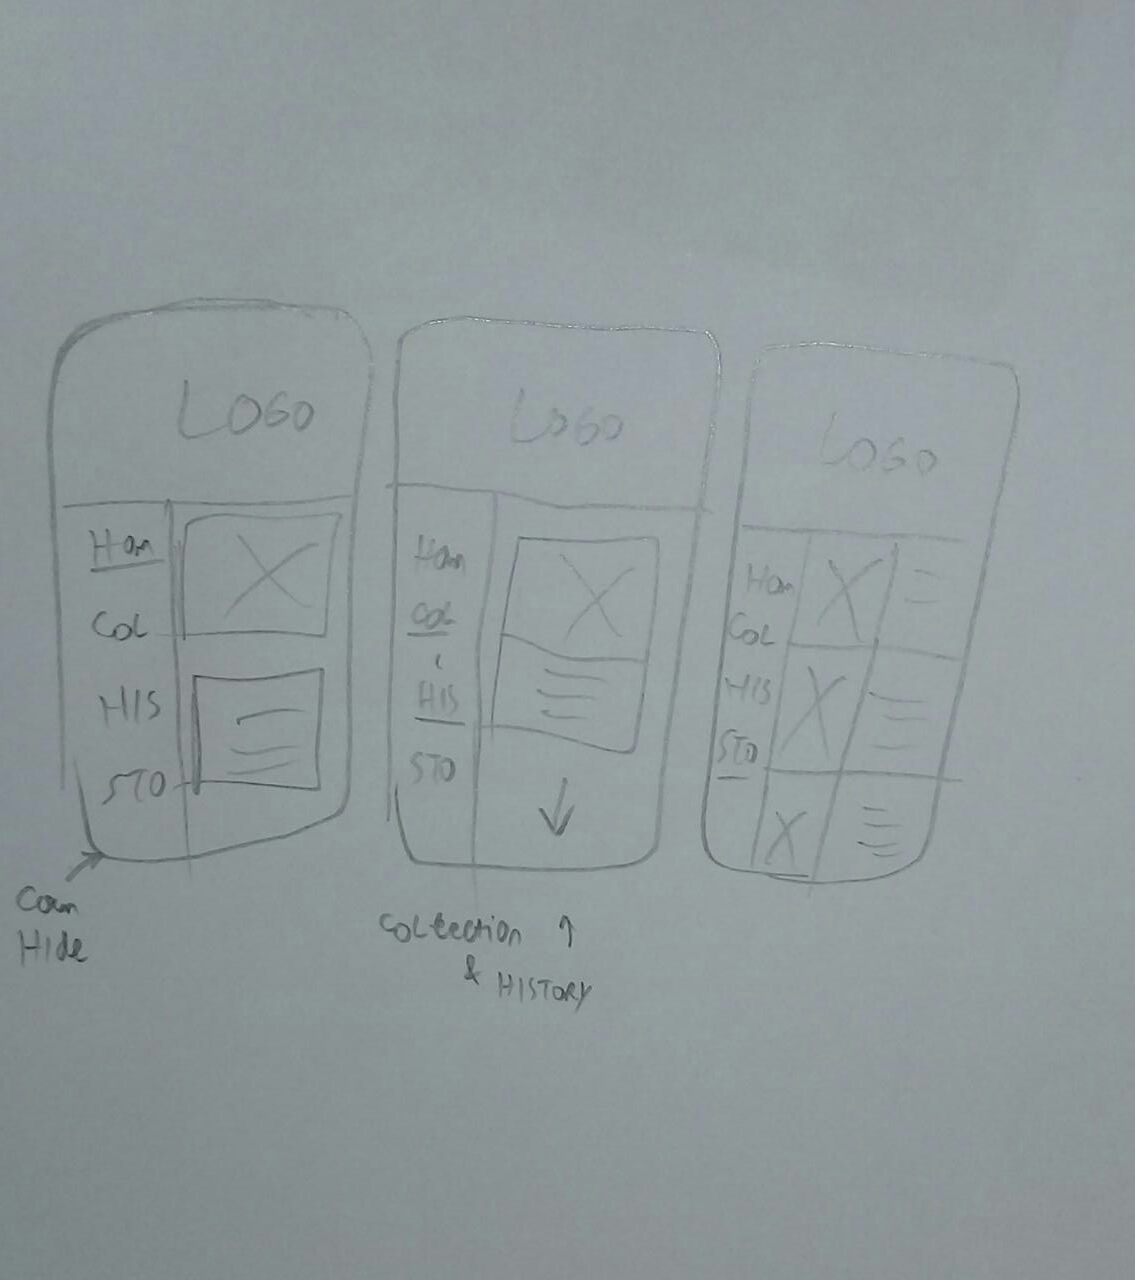 LOGO
Hom
COL
HIS
STO
Can
Hide
LOGO
Hom
COL
HIS
STO
Collection
& HISTORY
LOGO
Hom
COL
HIS
STO